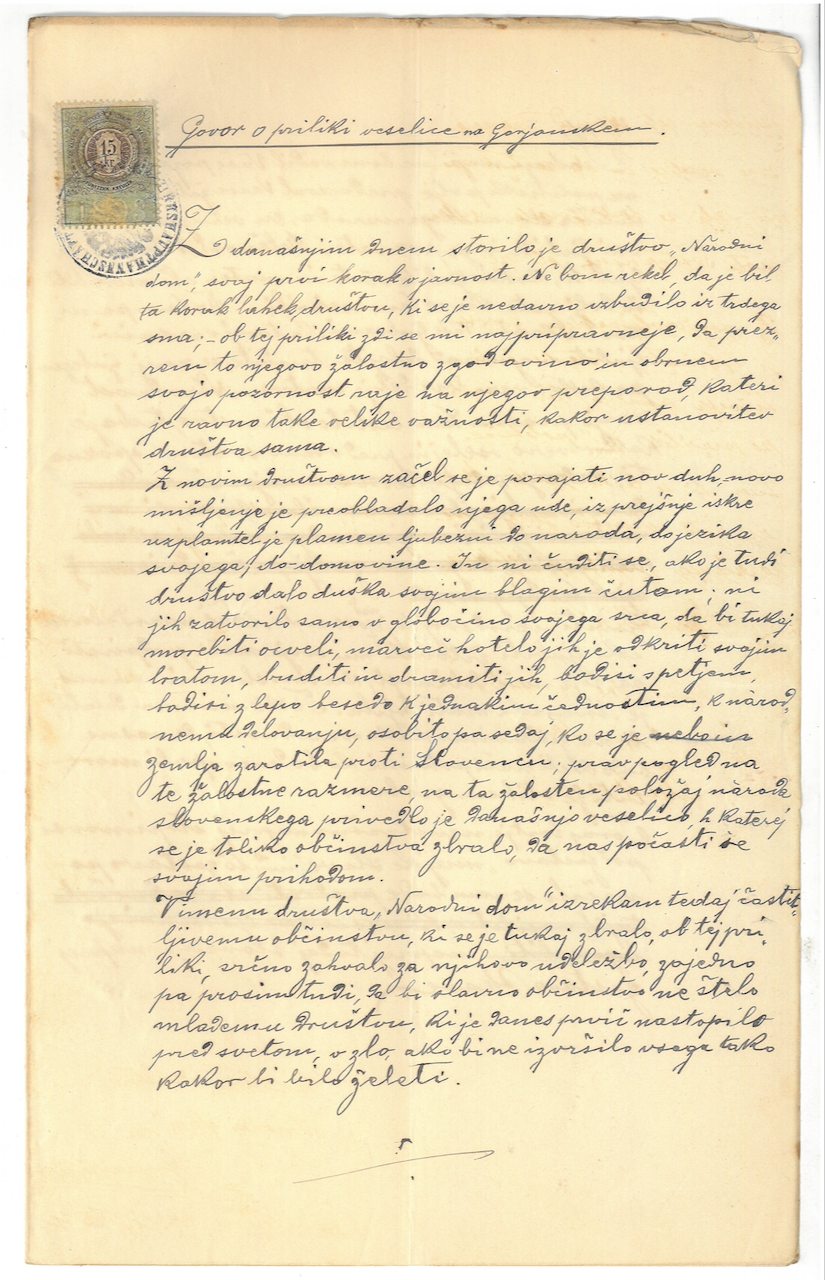 Govor o priliki veselice na Gorjanskem.
15
kr.
BEZIRKSHAUPTMANNSCHAFT
Z današnjim dnem storilo je društvo „Národni
dom", svoj prvi korak v javnost. Ne bom rekel, da je bil
ta korak lahek, društvu, ki se je nedavno vzbudilo iz trdega
sna; – ob tej priliki zdi se mi najpripravneje, da prez„
rem to njegovo žalostno zgodovino in obrnem
svojo pozornost raje na njegov preporod, kateri
je ravno take velike važnosti, kakor ustanovitev
društva sama.
Z novim društvom začel se je porajati nov duh, novo
mišljenje je preobladalo njega ude, iz prejšnje iskre
vzplamtel je plamen ljubezni do naroda, do jezika
svojega, do domovine. In ni čuditi se, ako je tudi
društvo dalo duška svojim blagim čutom; ni
jih zatvorilo samo v globočino svojega srca, da bi tukaj
morebiti oveli, marveč hotelo jih je odkriti svojim
bratom, buditi in dramiti jih, bodisi s petjem,
bodisi z lepo besedo k jednakim čednostim, k národ„
nemu delovanju, osobito pa sedaj, ko se je nebo in
zemlja zarotila proti Slovencu; prav pogled na
te žalostne razmere, na ta žalosten položaj národa
slovenskega privedlo je današnjo veselico, h katerej
se je toliko občinstva zbralo, da nas počasti se
svojim prihodom.
V imenu društva „Narodni dom" izrekam tedaj častit„
ljivemu občinstvu, ki se je tukaj zbralo, ob tej pri„
liki, srčno zahvalo za njihovo udeležbo, zajedno
pa prosim tudi, da bi slavno občinstvo ne štelo
mlademu društvu, ki je danes prvič nastopilo
pred svetom, v zlo, ako bi ne izvršilo vsega tako
kakor bi bilo želeti.